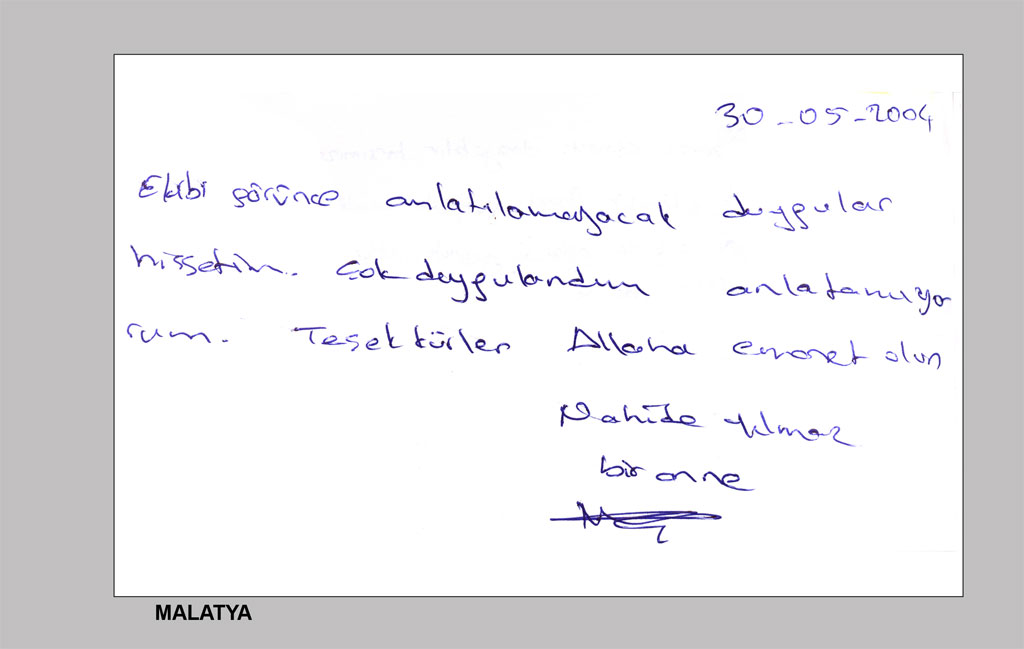 30-05-2004
Ekibi görünce anlatılamayacak duygular
hissetim. Çok duygulandım anlatamıyo
rum. Teşekkürler Allaha emanet olun
Nahide Yılmaz
bir anne
MALATYA